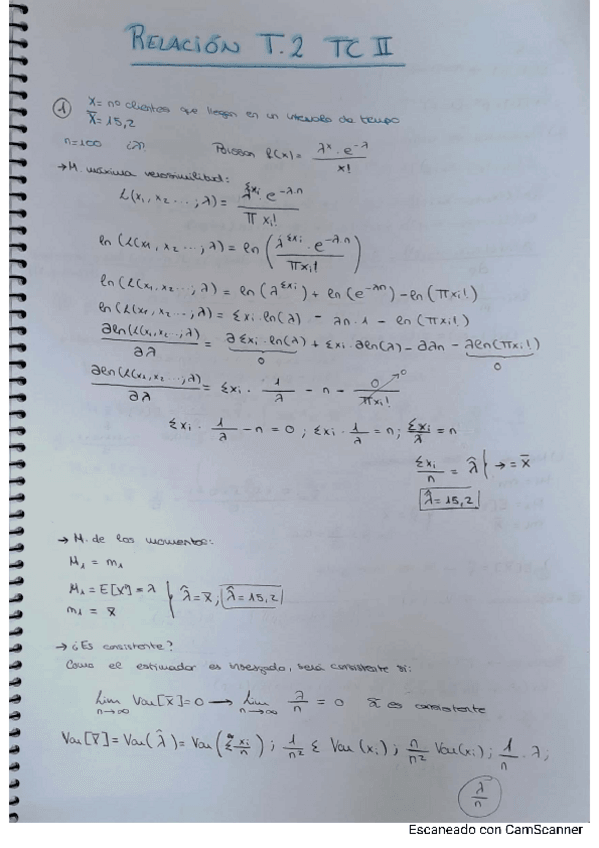 RELACIÓN T.2 TC II
① X = nº clientes que llegan en un intervalo de tiempo
X̄ = 15,2
n=100 ¿λ? Poisson P(x) = λ^x · e^-λ / x!
→ M. máxima verosimilitud:
L(x₁, x₂ ...; λ) = λ^Σxi · e^-λ·n / π xi!
ln(L(x₁, x₂ ...; λ)) = ln(λ^Σxi · e^-λ·n / πxi!)
ln(L(x₁, x₂ ...; λ)) = ln(λ^Σxi) + ln(e^-λn) - ln(πxi!)
ln(L(x₁, x₂ ...; λ)) = Σxi · ln(λ) - λn · 1 - ln(πxi!)
∂ln(L(x₁, x₂ ...; λ)) / ∂λ = ∂Σxi · ln(λ) + Σxi · ∂ln(λ) - ∂λn - ∂ln(πxi!)
0 0
∂ln(L(x₁, x₂ ...; λ)) / ∂λ = Σxi · 1/λ - n - 0/πxi! → 0
Σxi · 1/λ - n = 0 ; Σxi · 1/λ = n ; Σxi/λ = n
Σxi/n = λ̂ } → = x̄
λ̂ = 15,2
→ M. de los momentos:
M₁ = m₁
M₁ = E[X] = λ } λ̂ = x̄ ; λ̂ = 15,2
m₁ = x̄
→ ¿Es consistente?
Como el estimador es insesgado, será consistente si:
lim n→∞ Var[x̄] = 0 → lim n→∞ λ/n = 0 x̄ es consistente
Var[x̄] = Var(λ̂) = Var(Σ xi/n) ; 1/n² Σ Var(xi) ; n/n² Var(xi) ; 1/n · λ ;
λ/n
Escaneado con CamScanner